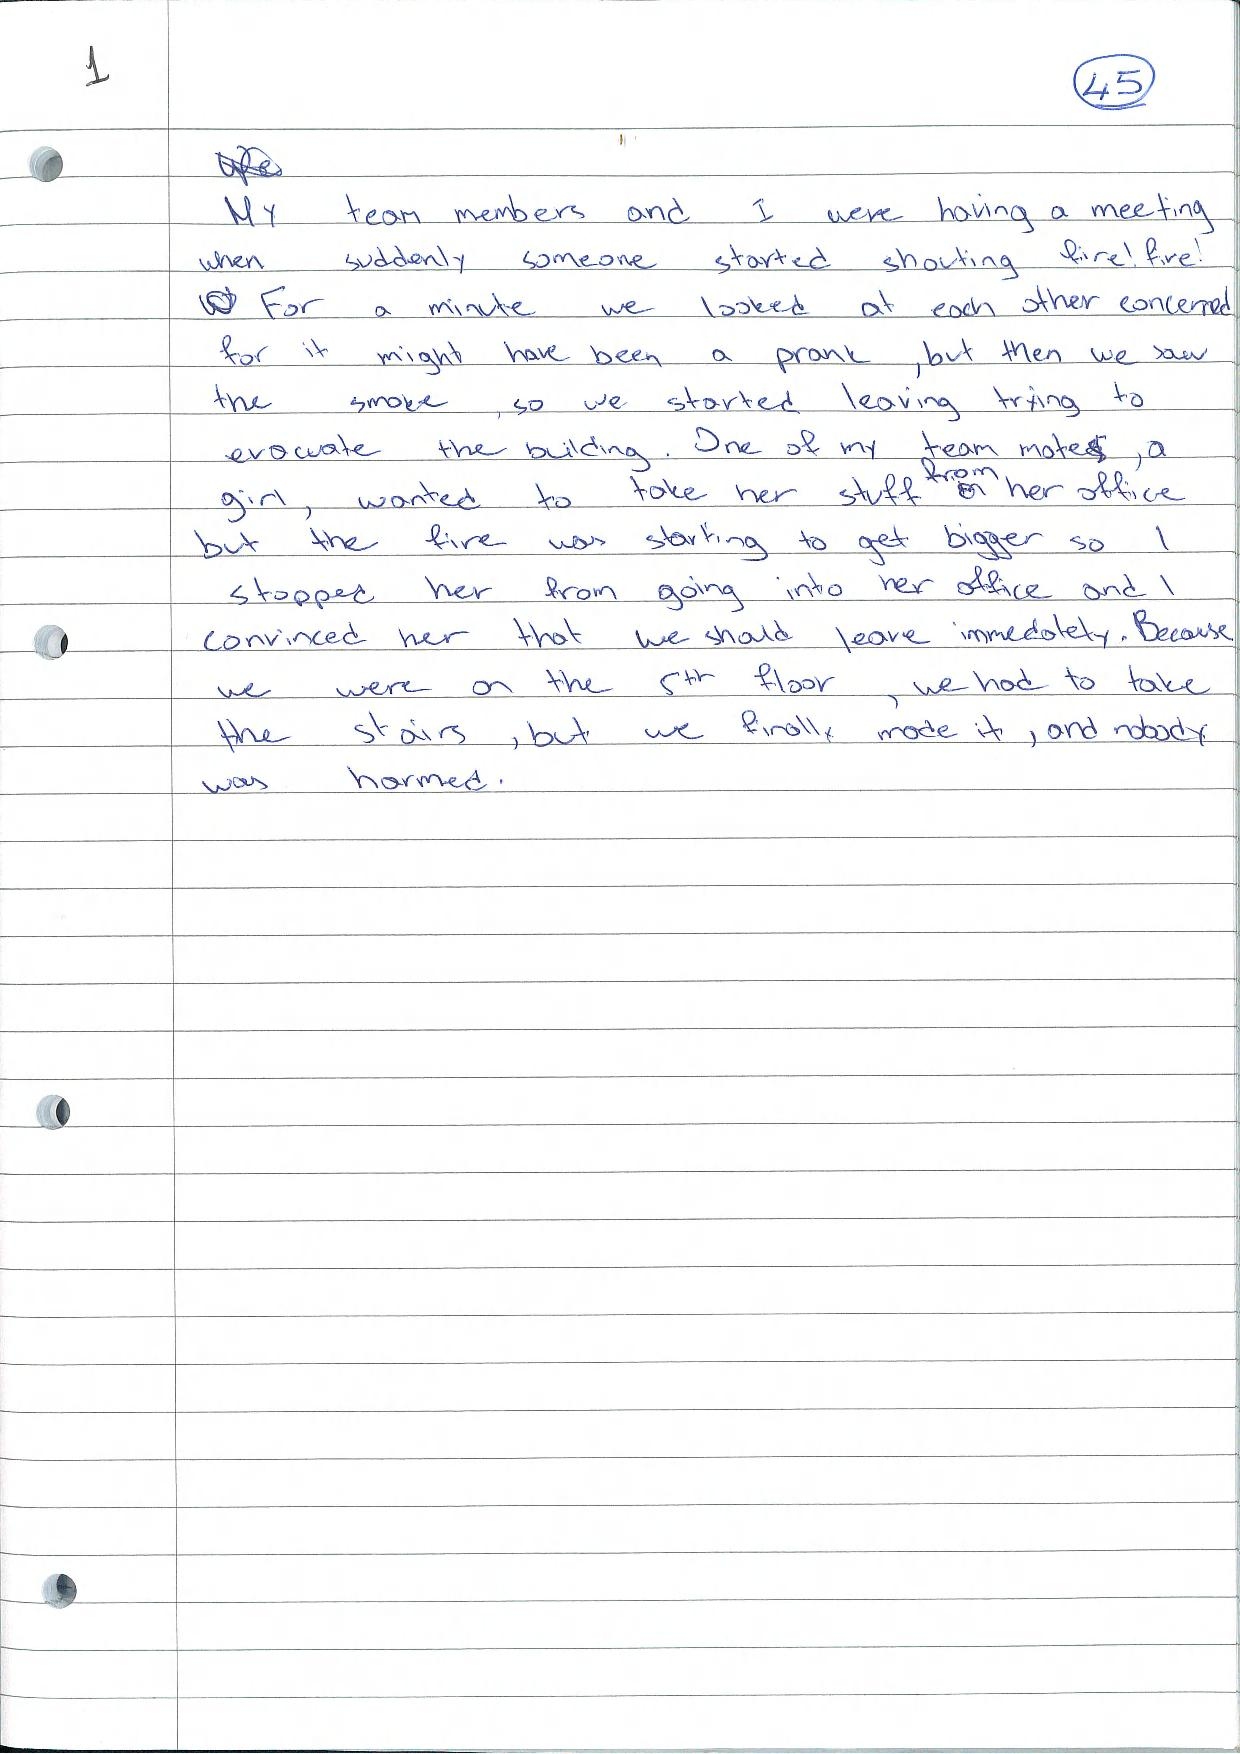 1
45
My team members and I were having a meeting
when suddenly someone started shouting fire! fire!
For a minute we looked at each other concerned
for it might have been a prank, but then we saw
the smoke, so we started leaving trying to
evacuate the building. One of my team mates, a
girl, wanted to take her stuff from her office
but the fire was starting to get bigger so I
stopped her from going into her office and I
convinced her that we should leave immedately. Because
we were on the 5th floor, we had to take
the stairs, but we finally made it, and nobody
was harmed.